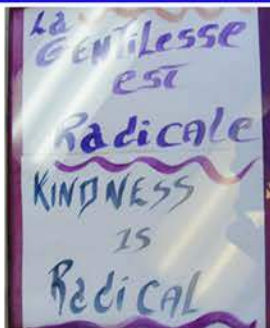 La
GENTiLesse
est
Radicale
KINDNESS
IS
RadiCAL